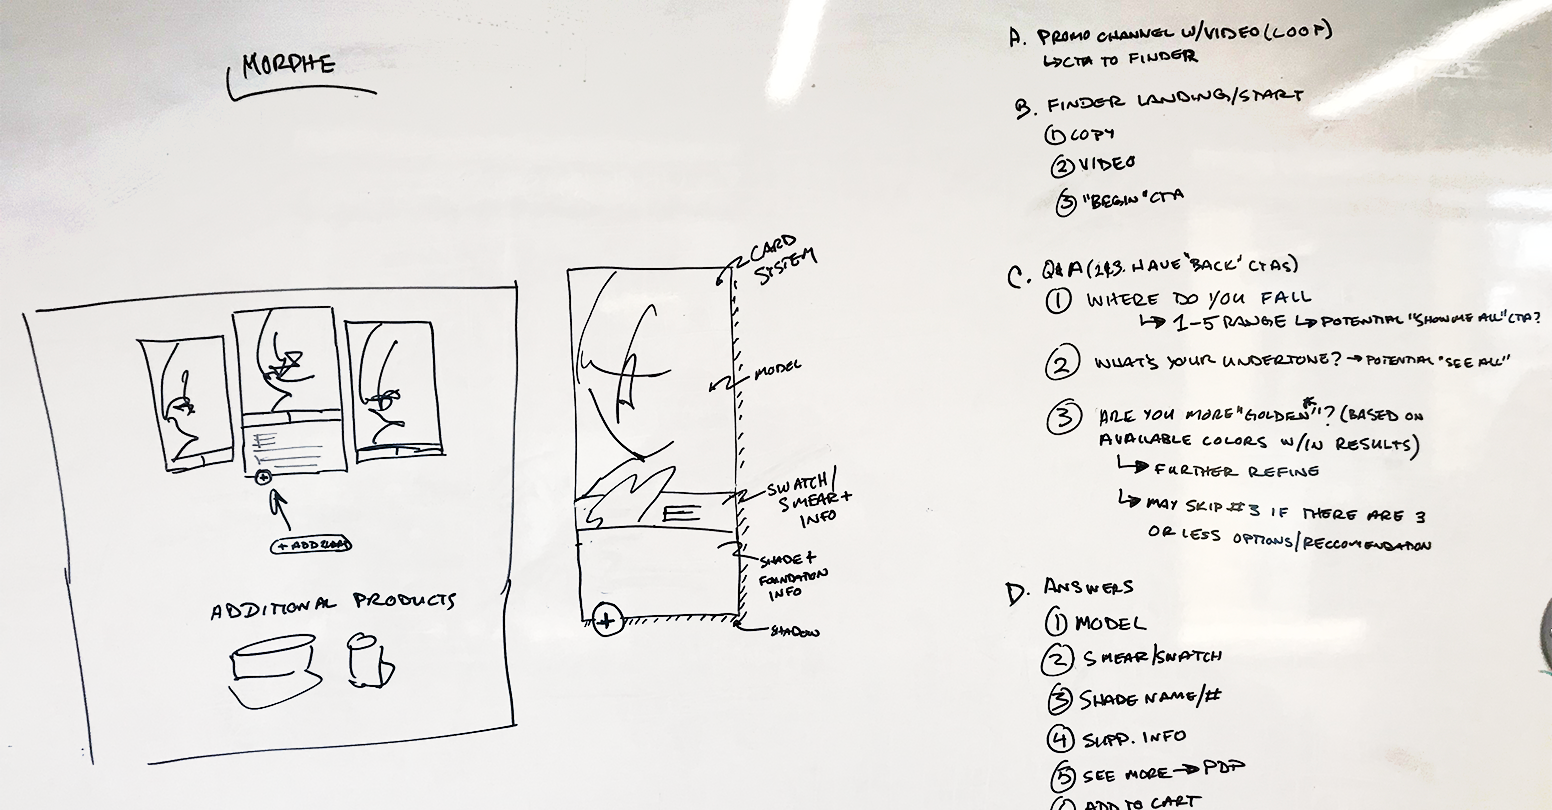 MORPHE
A. PROMO CHANNEL W/VIDEO (LOOP)
↳ CTA TO FINDER
B. FINDER LANDING/START
① COPY
② VIDEO
③ "BEGIN" CTA
C. Q&A (2&3. HAVE "BACK" CTAS)
① WHERE DO YOU FALL
↳ 1-5 RANGE ↳ POTENTIAL "SHOW ME ALL" CTA?
② WHAT'S YOUR UNDERTONE? → POTENTIAL "SEE ALL"
③ ARE YOU MORE "GOLDEN*"? (BASED ON
AVAILABLE COLORS W/IN RESULTS)
↳ FURTHER REFINE
↳ MAY SKIP #3 IF THERE ARE 3
OR LESS OPTIONS/RECCOMENDATION
D. ANSWERS
① MODEL
② SMEAR/SWATCH
③ SHADE NAME/#
④ SUPP. INFO
⑤ SEE MORE → PDP
ADD TO CART
CARD
SYSTEM
MODEL
SWATCH/
SMEAR +
INFO
SHADE +
FOUNDATION
INFO
SHADOW
+
+
+ ADD
ADDITIONAL PRODUCTS